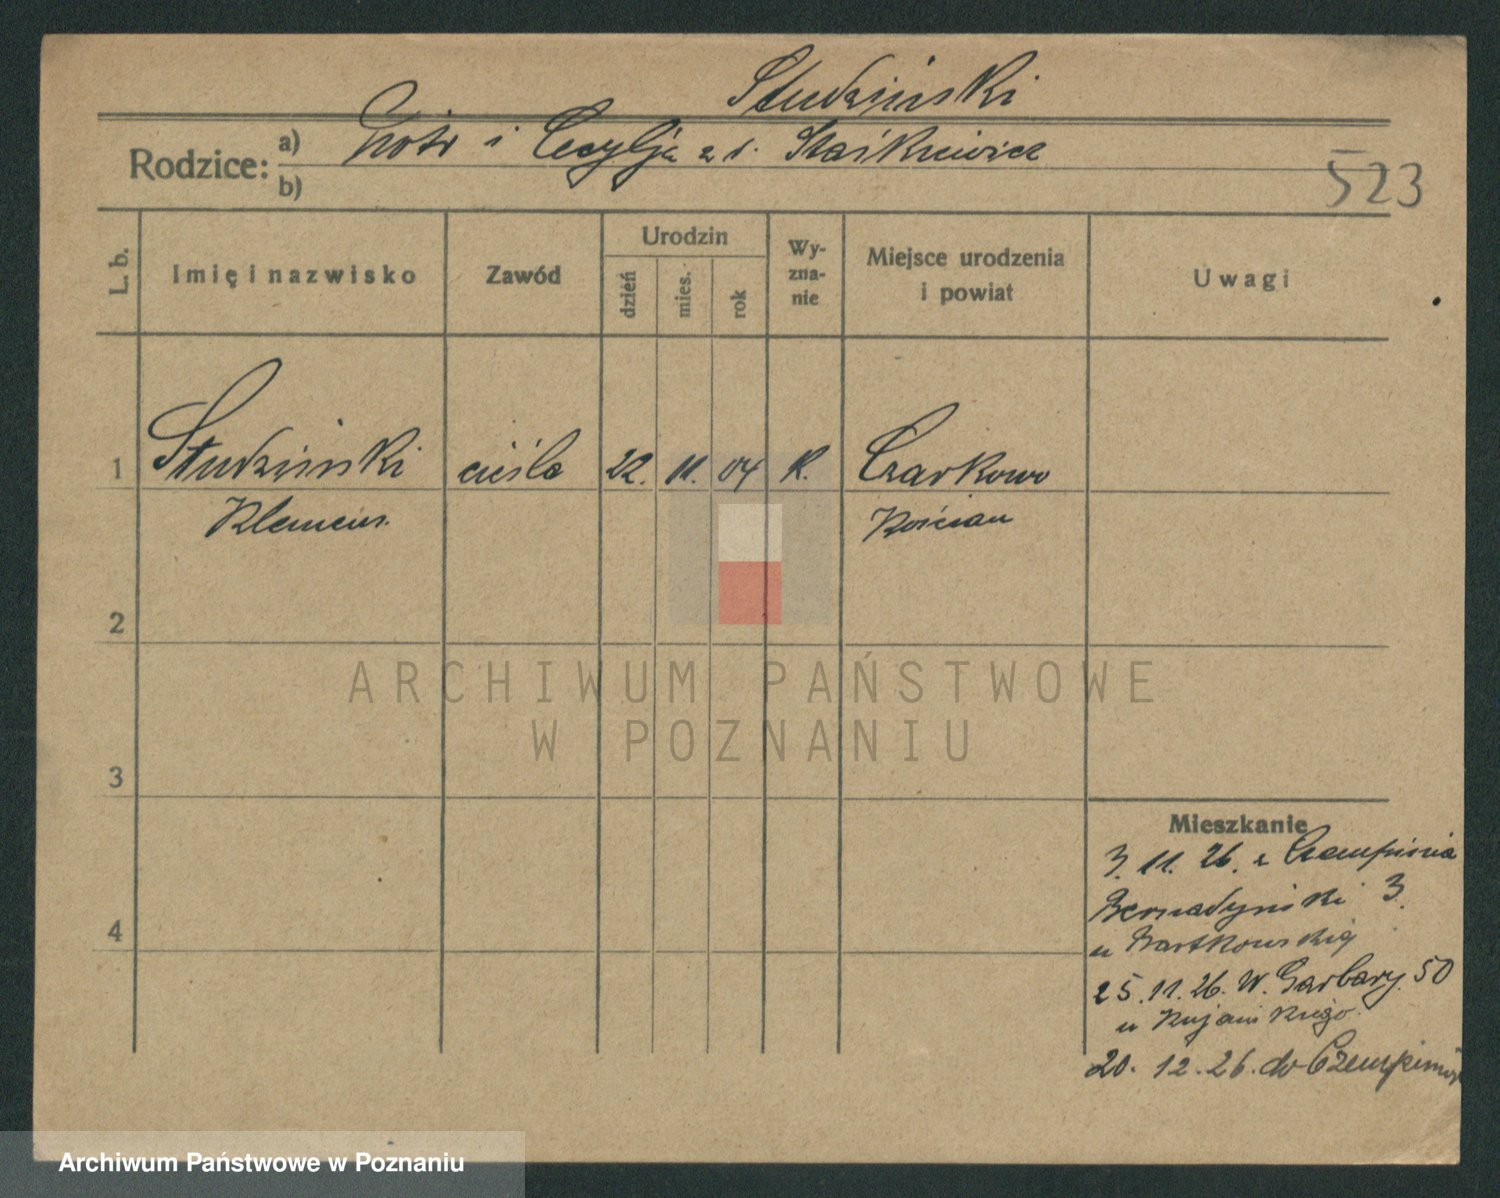 Studziński
Rodzice: a) Piotr i Cecylja z d. Staśkiewicz
b)
523
L. b.
Imię i nazwisko
Zawód
Urodzin
dzień
mies.
rok
Wy-
zna-
nie
Miejsce urodzenia
i powiat
Uwagi
1 Studziński cieśla 22. 11. 04 K. Czarkowo
Klemens. Kościan
2
3
4
Mieszkanie
3. 11. 26. z Czempinia
Bernadyński 3.
u Bartkowskiej
25. 11. 26. W. Garbary 50
u Kujawskiego
20. 12. 26. do Czempinia
ARCHIWUM PAŃSTWOWE
W POZNANIU
Archiwum Państwowe w Poznaniu